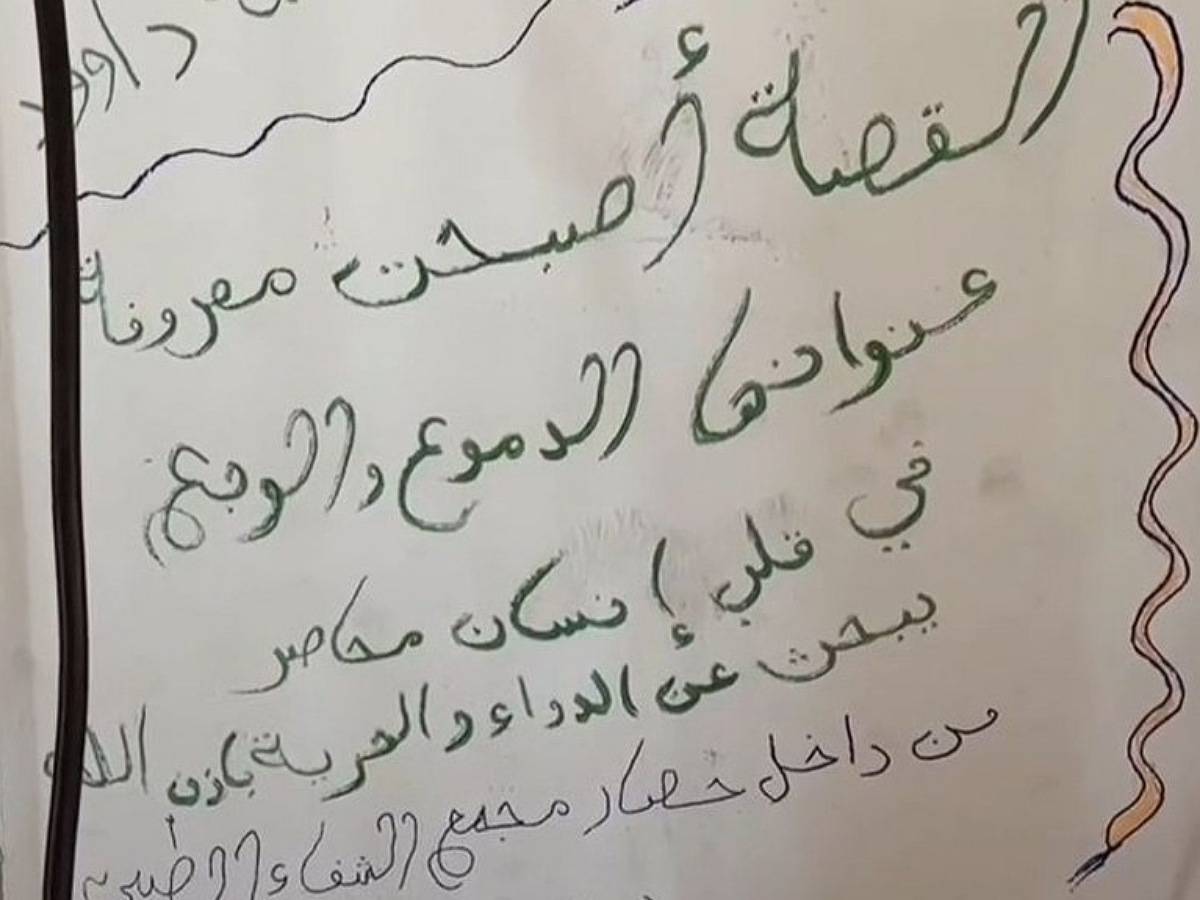 داوود
القصة أصبحت معروفة
عنوانها الدموع والوجع
في قلب إنسان محاصر
يبحث عن الدواء والحرية بإذن الله
من داخل حصار مجمع الشفاء الطبي